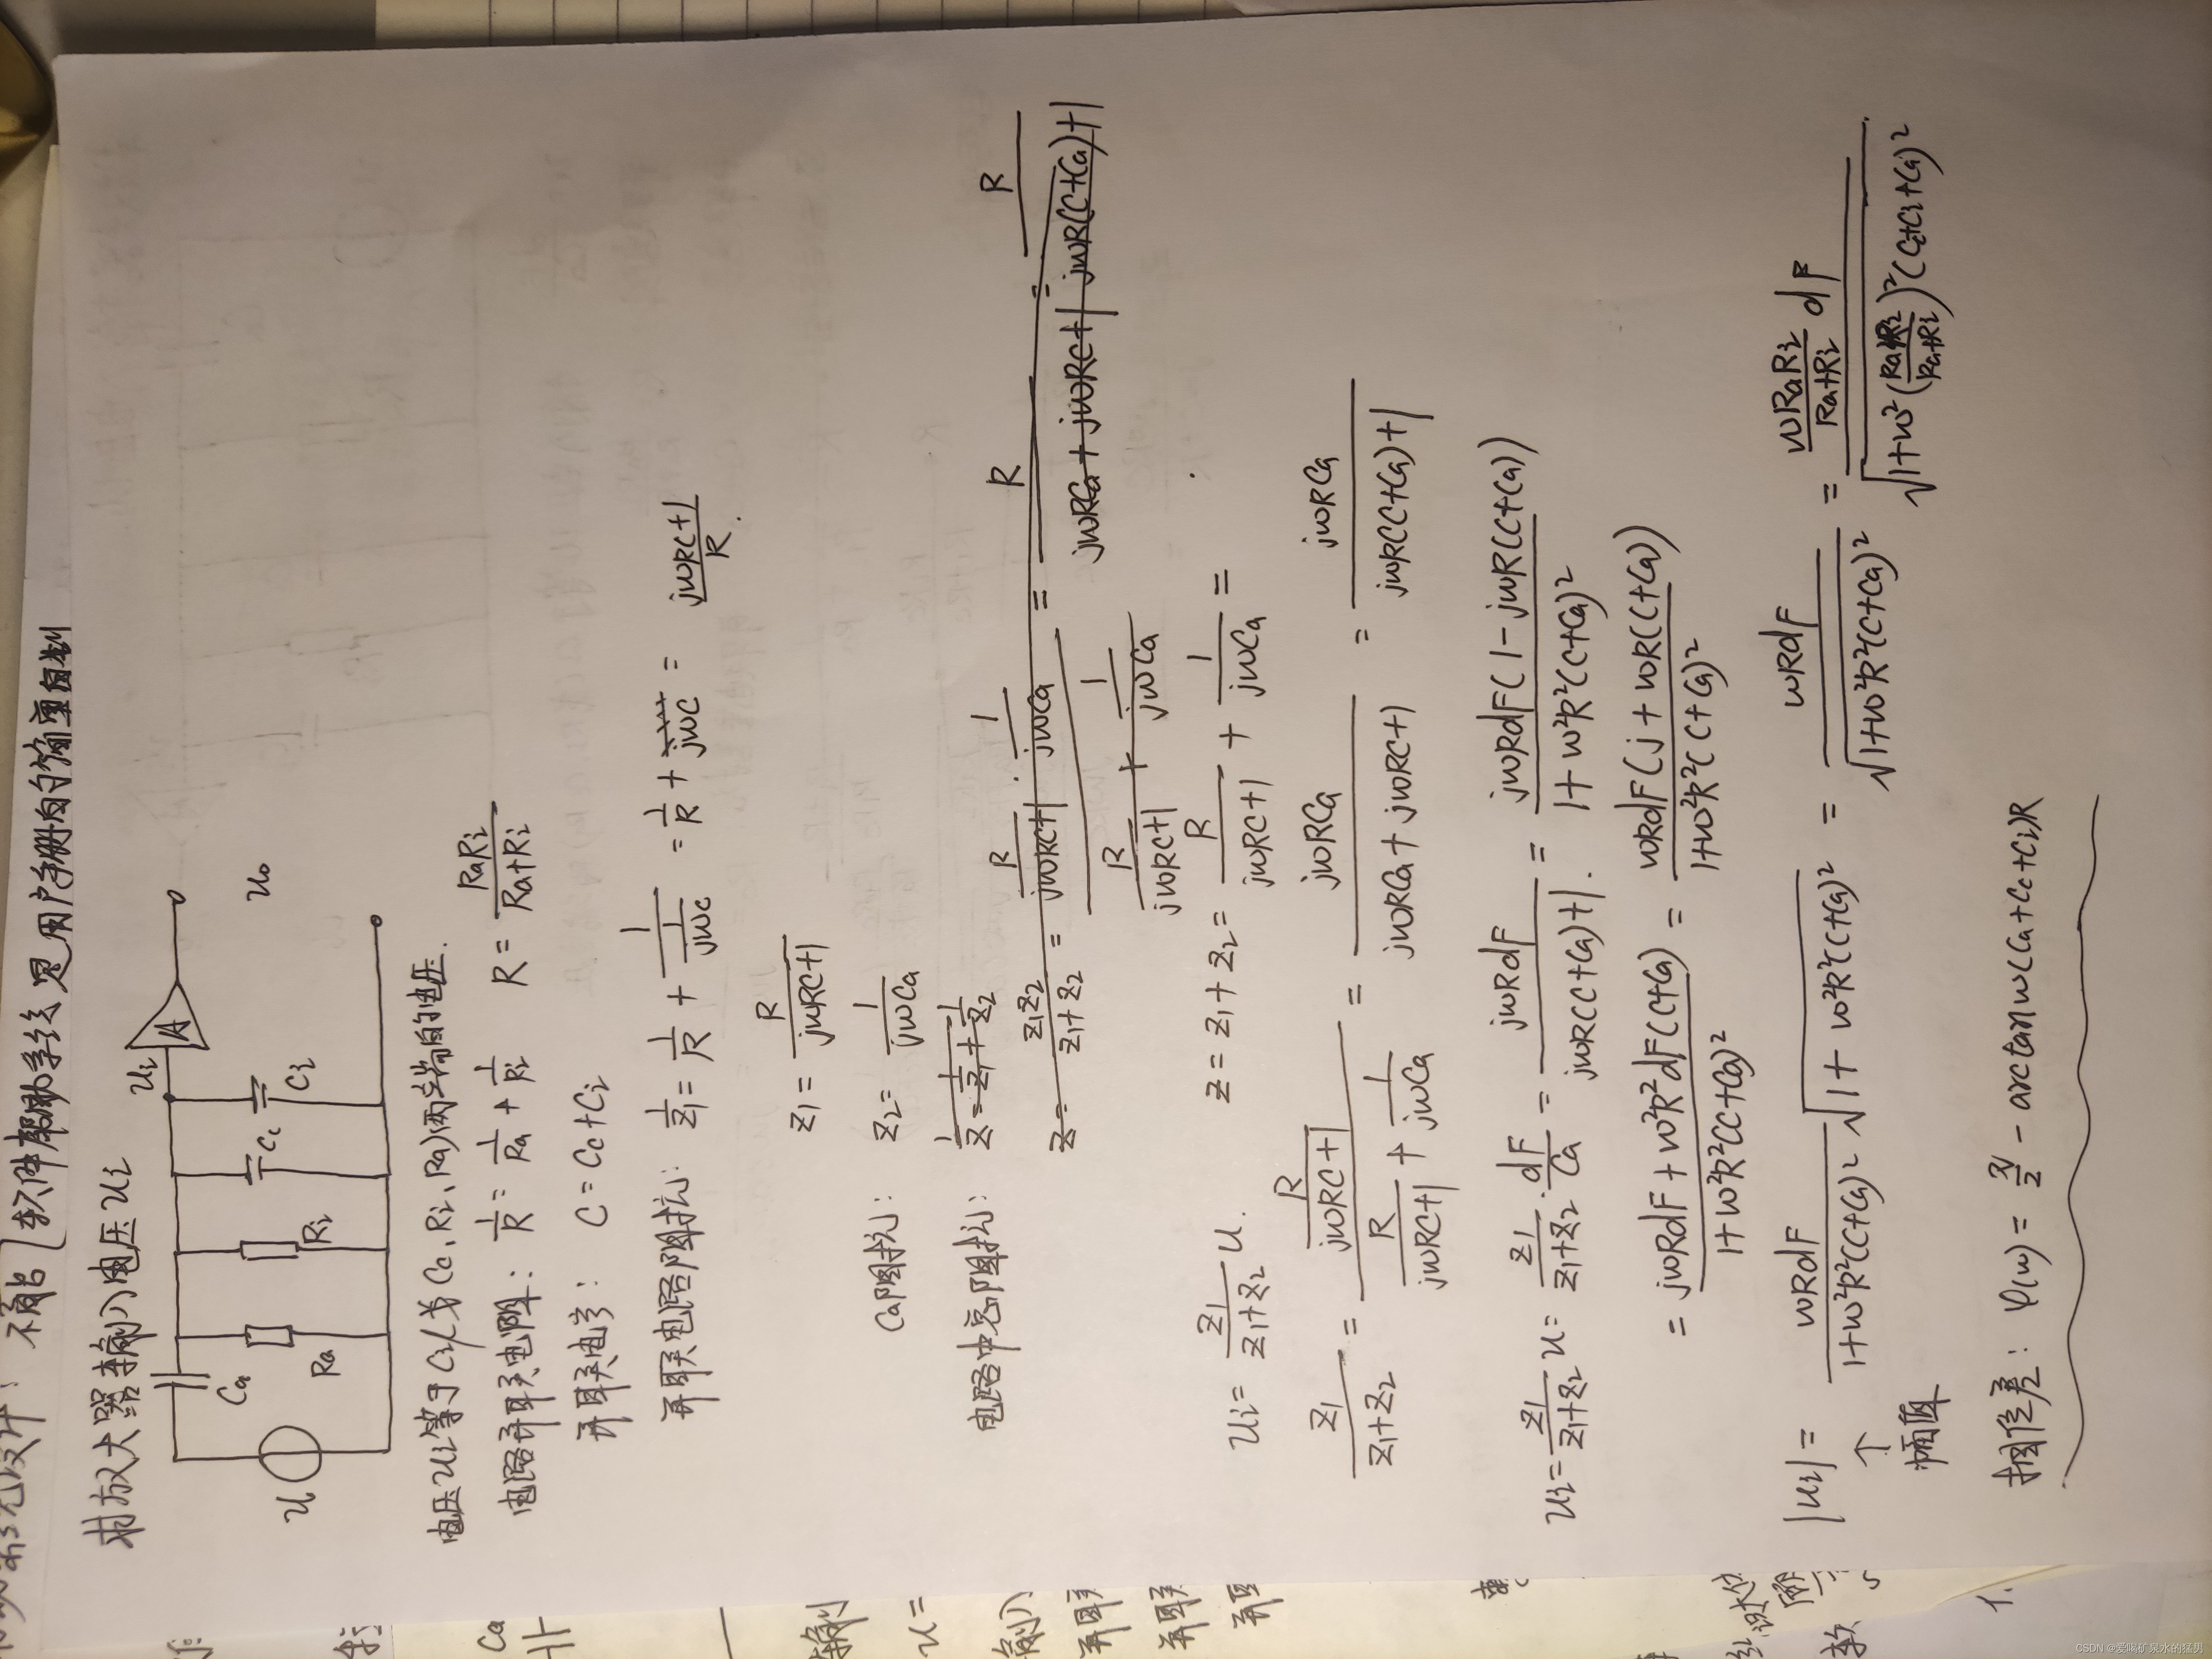 求放大器输入电压Ui
U
Ca
Ra
Ri
Cc
Ci
Ui
A
U₀
电压Ui等于Ci(或Cc、Ri、Ra)两端的电压.
电路并联电阻: 1/R = 1/Ra + 1/Ri R = RaRi/(Ra+Ri)
并联电容: C = Cc + Ci
并联电路阻抗: 1/Z₁ = 1/R + 1/(1/jωC) = 1/R + jωC = (jωRC+1)/R.
Z₁ = R/(jωRC+1)
Ca阻抗: Z₂ = 1/(jωCa)
电路中总阻抗: 1/Z = 1/Z₁ + 1/Z₂
Z = Z₁Z₂/(Z₁+Z₂) = (R/(jωRC+1) · 1/(jωCa))/(R/(jωRC+1) + 1/(jωCa)) = R/(jωRCa + jωRC+1) = R/(jωR(C+Ca)+1)
Z = Z₁ + Z₂ = R/(jωRC+1) + 1/(jωCa) =
Ui = Z₁/(Z₁+Z₂) U.
Z₁/(Z₁+Z₂) = (R/(jωRC+1))/(R/(jωRC+1) + 1/(jωCa)) = jωRCa/(jωRCa + jωRC+1) = jωRCa/(jωR(C+Ca)+1)
Ui = Z₁/(Z₁+Z₂) U = Z₁/(Z₁+Z₂) · dF/Ca = jωRdF/(jωR(C+Ca)+1). = jωRdF(1-jωR(C+Ca))/(1+ω²R²(C+Ca)²
= (jωRdF + ω²R²dF(C+Ca))/(1+ω²R²(C+Ca)²) = ωRdF(j + ωR(C+Ca))/(1+ω²R²(C+Ca)²)
|Ui| = ωRdF/(1+ω²R²(C+Ca)²) √(1+ω²R²(C+Ca)²) = ωRdF/√(1+ω²R²(C+Ca)²) = (ωRaRi/(Ra+Ri) dF)/√(1+ω²(RaRi/(Ra+Ri))²(Cc+Ci+Ca)²)
↑
幅值
相位差: φ(ω) = π/2 - arctan ω(Ca+Cc+Ci)R
Ca
U=
输入
并联
并联
并联
1.
CSDN @爱喝矿泉水的猛男